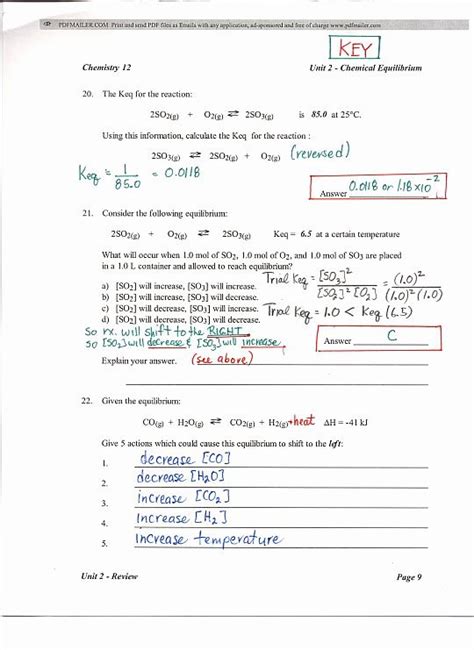 PDFMAILER.COM Print and send PDF files as Emails with any application, ad-sponsored and free of charge www.pdfmailer.com
KEY
Chemistry 12 Unit 2 - Chemical Equilibrium
20. The Keq for the reaction:
2SO2(g) + O2(g) ⇌ 2SO3(g) is 85.0 at 25°C.
Using this information, calculate the Keq for the reaction :
2SO3(g) ⇌ 2SO2(g) + O2(g) (reversed)
Keq = 1/85.0 = 0.0118
Answer 0.0118 or 1.18x10⁻²
21. Consider the following equilibrium:
2SO2(g) + O2(g) ⇌ 2SO3(g) Keq = 6.5 at a certain temperature
What will occur when 1.0 mol of SO2, 1.0 mol of O2, and 1.0 mol of SO3 are placed
in a 1.0 L container and allowed to reach equilibrium?
Trial Keq = [SO3]²/[SO2]²[O2] = (1.0)²/(1.0)²(1.0)
a) [SO2] will increase, [SO3] will increase.
b) [SO2] will increase, [SO3] will decrease.
c) [SO2] will decrease, [SO3] will increase. Trial Keq = 1.0 < Keq (6.5)
d) [SO2] will decrease, [SO3] will decrease.
So rx. will shift to the RIGHT
so [SO2] will decrease & [SO3] will increase. Answer C
Explain your answer. (see above)
22. Given the equilibrium:
CO(g) + H2O(g) ⇌ CO2(g) + H2(g) +heat ΔH = -41 kJ
Give 5 actions which could cause this equilibrium to shift to the left:
1. decrease [CO]
2. decrease [H2O]
3. increase [CO2]
4. increase [H2]
5. increase temperature
Unit 2 - Review Page 9